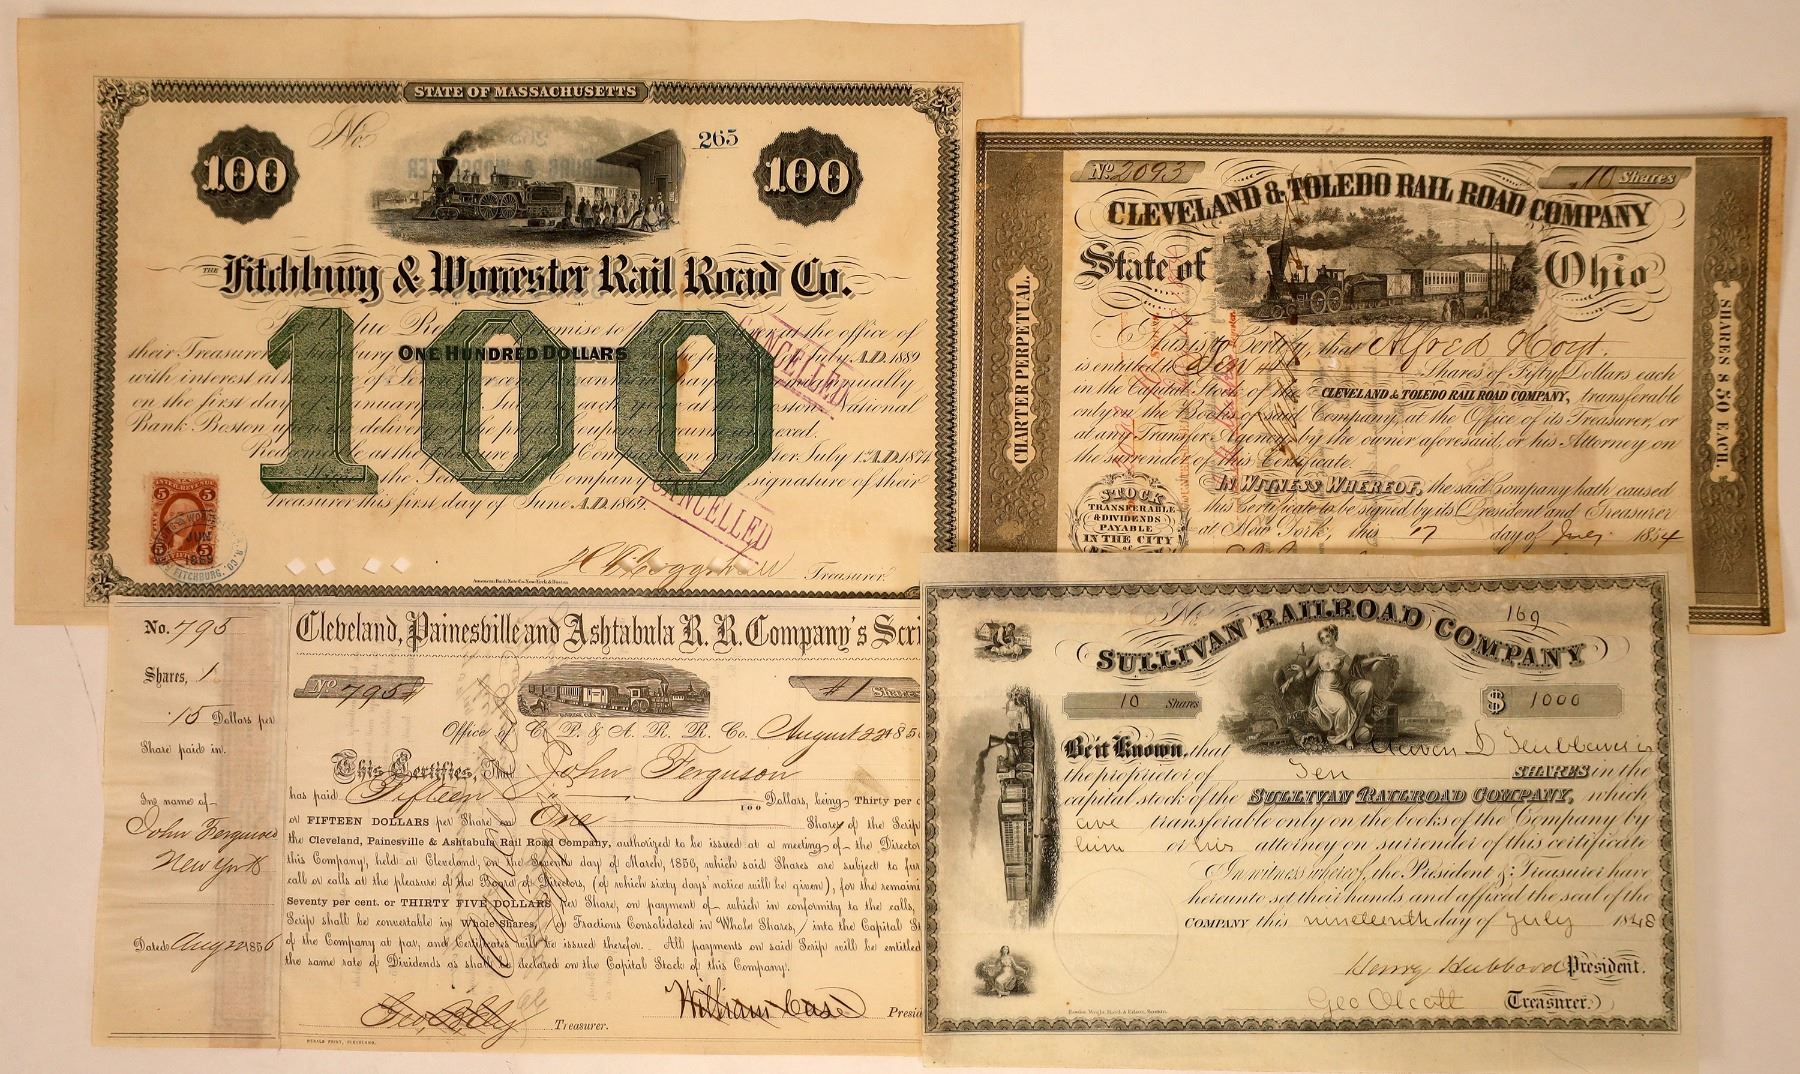 STATE OF MASSACHUSETTS
No. 265
100 100
THE Fitchburg & Worcester Rail Road Co.
For Value Received promise to pay bearer at the office of
their Treasurer in Fitchburg ONE HUNDRED DOLLARS on the first July A.D. 1889
with interest at the rate of Seven per cent per annum payable semi annually
on the first day of January and July in each year at the Boston National
Bank Boston upon the delivery of the proper Coupon hereunto annexed.
Redeemable at the pleasure of the Company on and after July 1st A.D. 1874
the Company signature of their
Treasurer this first day of June A.D. 1869.
100
CANCELLED
CANCELLED
INTER. REVENUE
5 5
JUN 1869
FITCHBURG
Treasurer.
American Bank Note Co. New York & Boston
No. 2093 10 Shares
CLEVELAND & TOLEDO RAIL ROAD COMPANY
State of Ohio
CHARTER PERPETUAL.
SHARES $50 EACH.
This is to Certify, that Alfred Hoyt.
is entitled to Ten Shares of Fifty Dollars each
in the Capital Stock of the CLEVELAND & TOLEDO RAIL ROAD COMPANY, transferable
only on the Books of said Company, at the Office of its Treasurer, or
at any Transfer Agency by the owner aforesaid, or his Attorney on
the surrender of this Certificate.
IN WITNESS WHEREOF, the said Company hath caused
this Certificate to be signed by its President and Treasurer
at New York, this 17 day of July 1854
STOCK
TRANSFERABLE
& DIVIDENDS
PAYABLE
IN THE CITY
of
No. 795
Shares, 1
15 Dollars per
Share paid in.
In name of
John Ferguson
New York
Dated Aug 22 1856
Cleveland, Painesville and Ashtabula R. R. Company's Scri
No 795 # 1 Shares
Office of C. P. & A. R. R. Co. August 22 185
This Certifies, That John Ferguson
has paid Fifteen 100 Dollars, being Thirty per c
or FIFTEEN DOLLARS per Share on One Share of the Scrip
the Cleveland, Painesville & Ashtabula Rail Road Company, authorized to be issued at a meeting of the Director
this Company, held at Cleveland, on the Seventh day of March, 1856, which said Shares are subject to fur
call or calls at the pleasure of the Board of Directors, (of which sixty days' notice will be given), for the remaini
Seventy per cent. or THIRTY FIVE DOLLARS per Share, on payment of which in conformity to the calls,
Scrip shall be convertable in Whole Shares, or Fractions Consolidated in Whole Shares, into the Capital St
of the Company at par, and Certificates will be issued therefor. All payments on said Scrip will be entitled
the same rate of Dividends as shall be declared on the Capital Stock of this Company.
Treasurer. William Case Presid
HERALD PRINT, CLEVELAND.
No. 169
SULLIVAN RAILROAD COMPANY
10 Shares $ 1000
Be it Known, that
the proprietor of Ten SHARES in the
capital stock of the SULLIVAN RAILROAD COMPANY, which
are transferable only on the books of the Company by
him or his attorney on surrender of this certificate
In witness whereof, the President & Treasurer have
hereunto set their hands and affixed the seal of the
COMPANY this nineteenth day of July 1848
Henry Hubbard President.
Geo Olcott Treasurer.